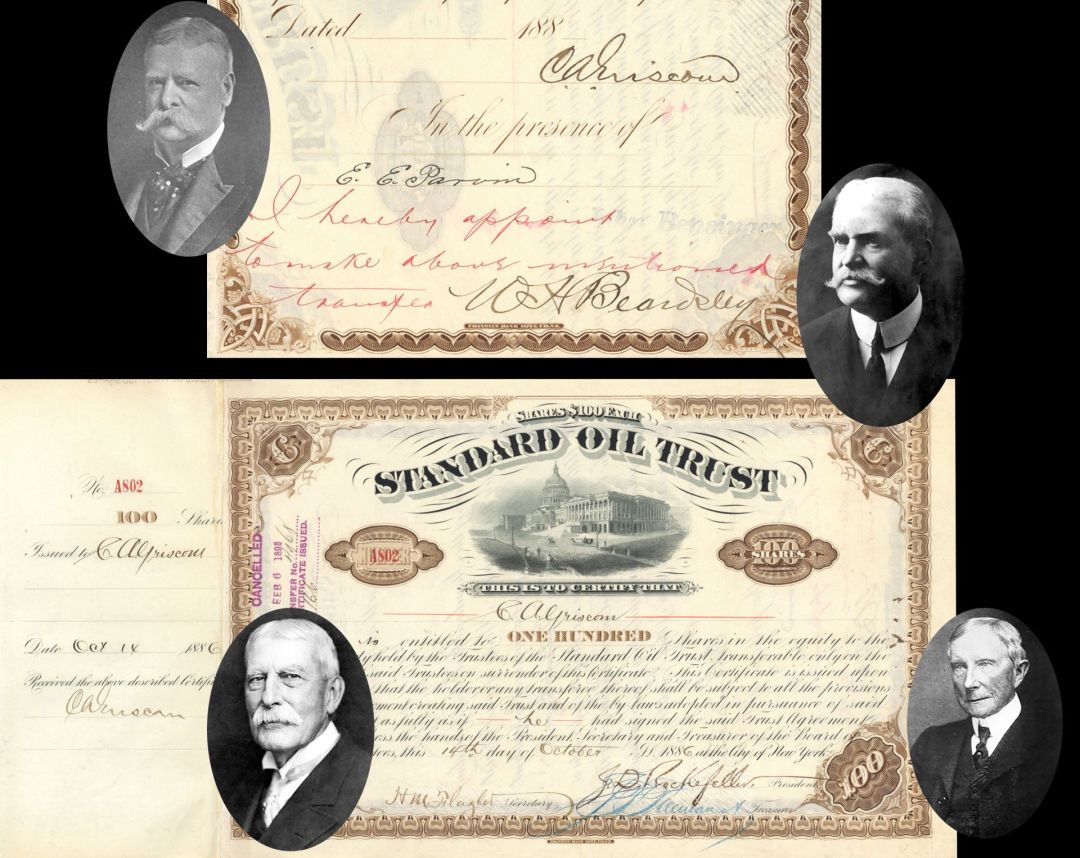 Dated 188
CAGriscom
In the presence of
E. E. Parvin
I hereby appoint
John Bensinger
to make above mentioned
transfer W H Beardsley
FRANKLIN BANK NOTE CO. N.Y.
SHARES $100 EACH
STANDARD OIL TRUST
No. A802
100 Shares
Issued to C.AGriscom
Date Oct 14 1886
Received the above described Certifi
CAGriscom
CANCELLED
FEB 6 1898
NSFER No.
RTIFICATE ISSUED.
A802
100
SHARES
THIS IS TO CERTIFY THAT
C.AGriscom
is entitled to ONE HUNDRED Shares in the equity to the
y held by the Trustees of the Standard Oil Trust, transferable only on the
said Trustees on surrender of this Certificate. This Certificate is issued upon
that the holder or any transferee thereof shall be subject to all the provisions
ment creating said Trust and of the by-laws adopted in pursuance of said
d as fully as if he had signed the said Trust Agreement.
ess the hands of the President, Secretary and Treasurer of the Board of
ees, this 14th day of October A.D. 1886 at the City of New York.
J D Rockefeller President
H M Flagler Secretary
Treasurer
100